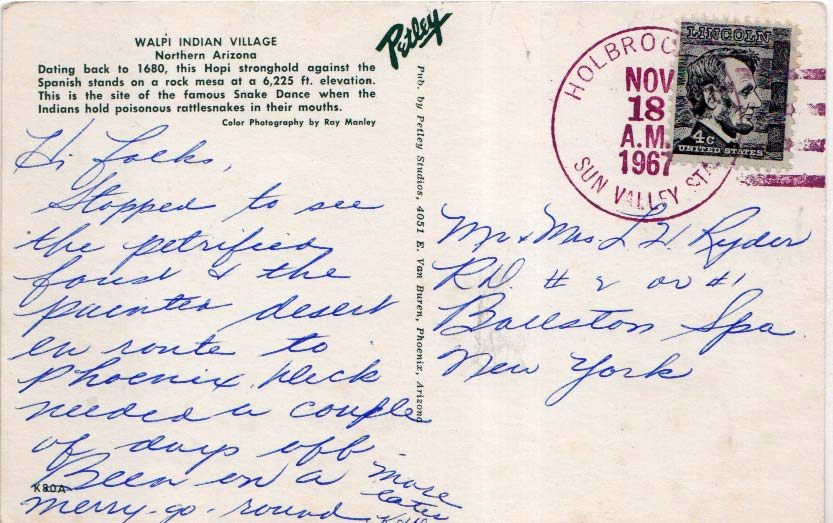 WALPI INDIAN VILLAGE
Northern Arizona
Dating back to 1680, this Hopi stronghold against the
Spanish stands on a rock mesa at a 6,225 ft. elevation.
This is the site of the famous Snake Dance when the
Indians hold poisonous rattlesnakes in their mouths.
Color Photography by Ray Manley
Petley
Pub. by Petley Studios, 4051 E. Van Buren, Phoenix, Arizona
HOLBROO
NOV
18
A.M.
1967
SUN VALLEY STA
LINCOLN
4c
UNITED STATES
Hi folks,
Stopped to see
the petrified
forest & the
painted desert
en route to
Phoenix.
needed a couple
of days off.
Been on a
merry-go-round
more
later
K80A
Mr & Mrs. L. H. Ryder
R.D. # 2 or #1
Ballston Spa
New York